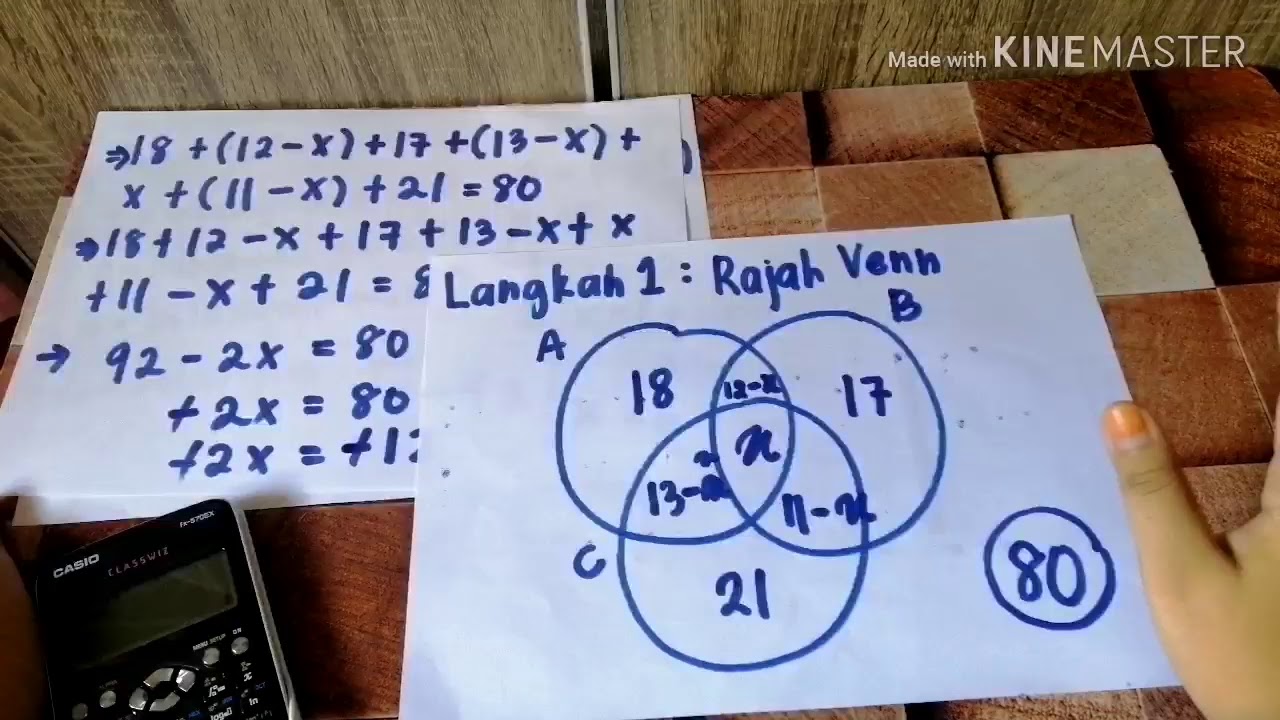 Made with KINEMASTER
⇒18 + (12 - x) + 17 + (13 - x) +
x + (11 - x) + 21 = 80
⇒18 + 12 - x + 17 + 13 - x + x
+ 11 - x + 21 = 8
→ 92 - 2x = 80
+2x = 80
+2x = +12
)
Langkah 1 : Rajah Venn
A
B
18
12-x
17
x
13-x
11-x
C
21
80
CASIO
CLASSWIZ
fx-570EX
MENU SETUP ON